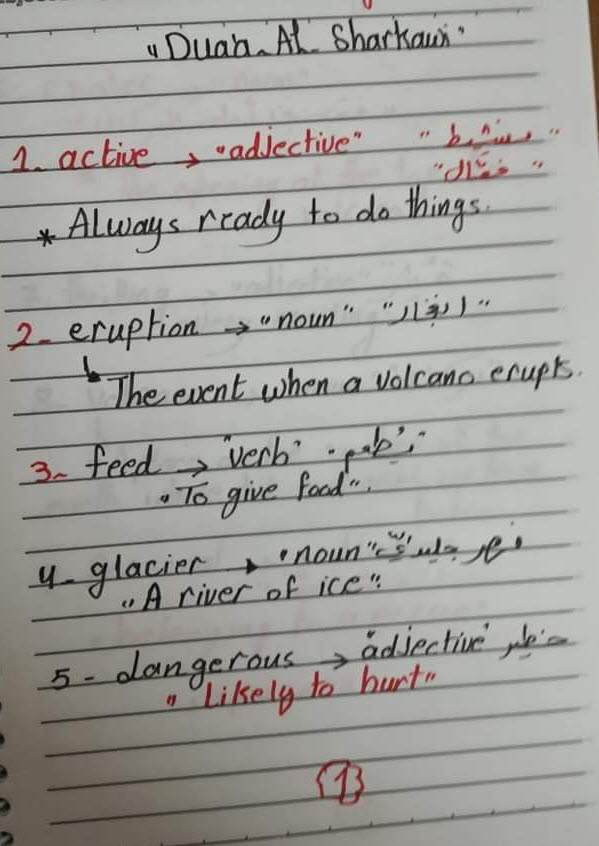 "Duaa Al Sharkawi"
1. active → "adjective" "نشيط"
"فعّال"
* Always ready to do things.
2- eruption → "noun" "انفجار"
The event when a volcano erupts.
3- feed → "verb" يُطعِم
"To give food".
4- glacier → "noun" نهر جليديّ
"A river of ice".
5- dangerous → "adjective" خطِر
"Likely to hurt"
1